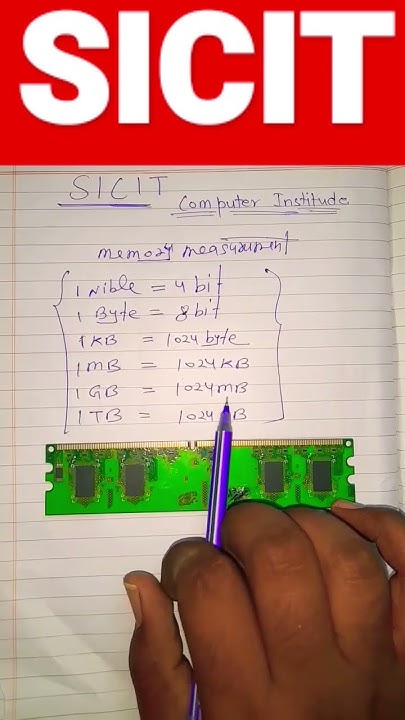 SICIT
SICIT
Computer Institude
memory measurment
1 Nible = 4 bit
1 Byte = 8bit
1 KB = 1024 byte
1 MB = 1024 KB
1 GB = 1024 MB
1 TB = 1024 B